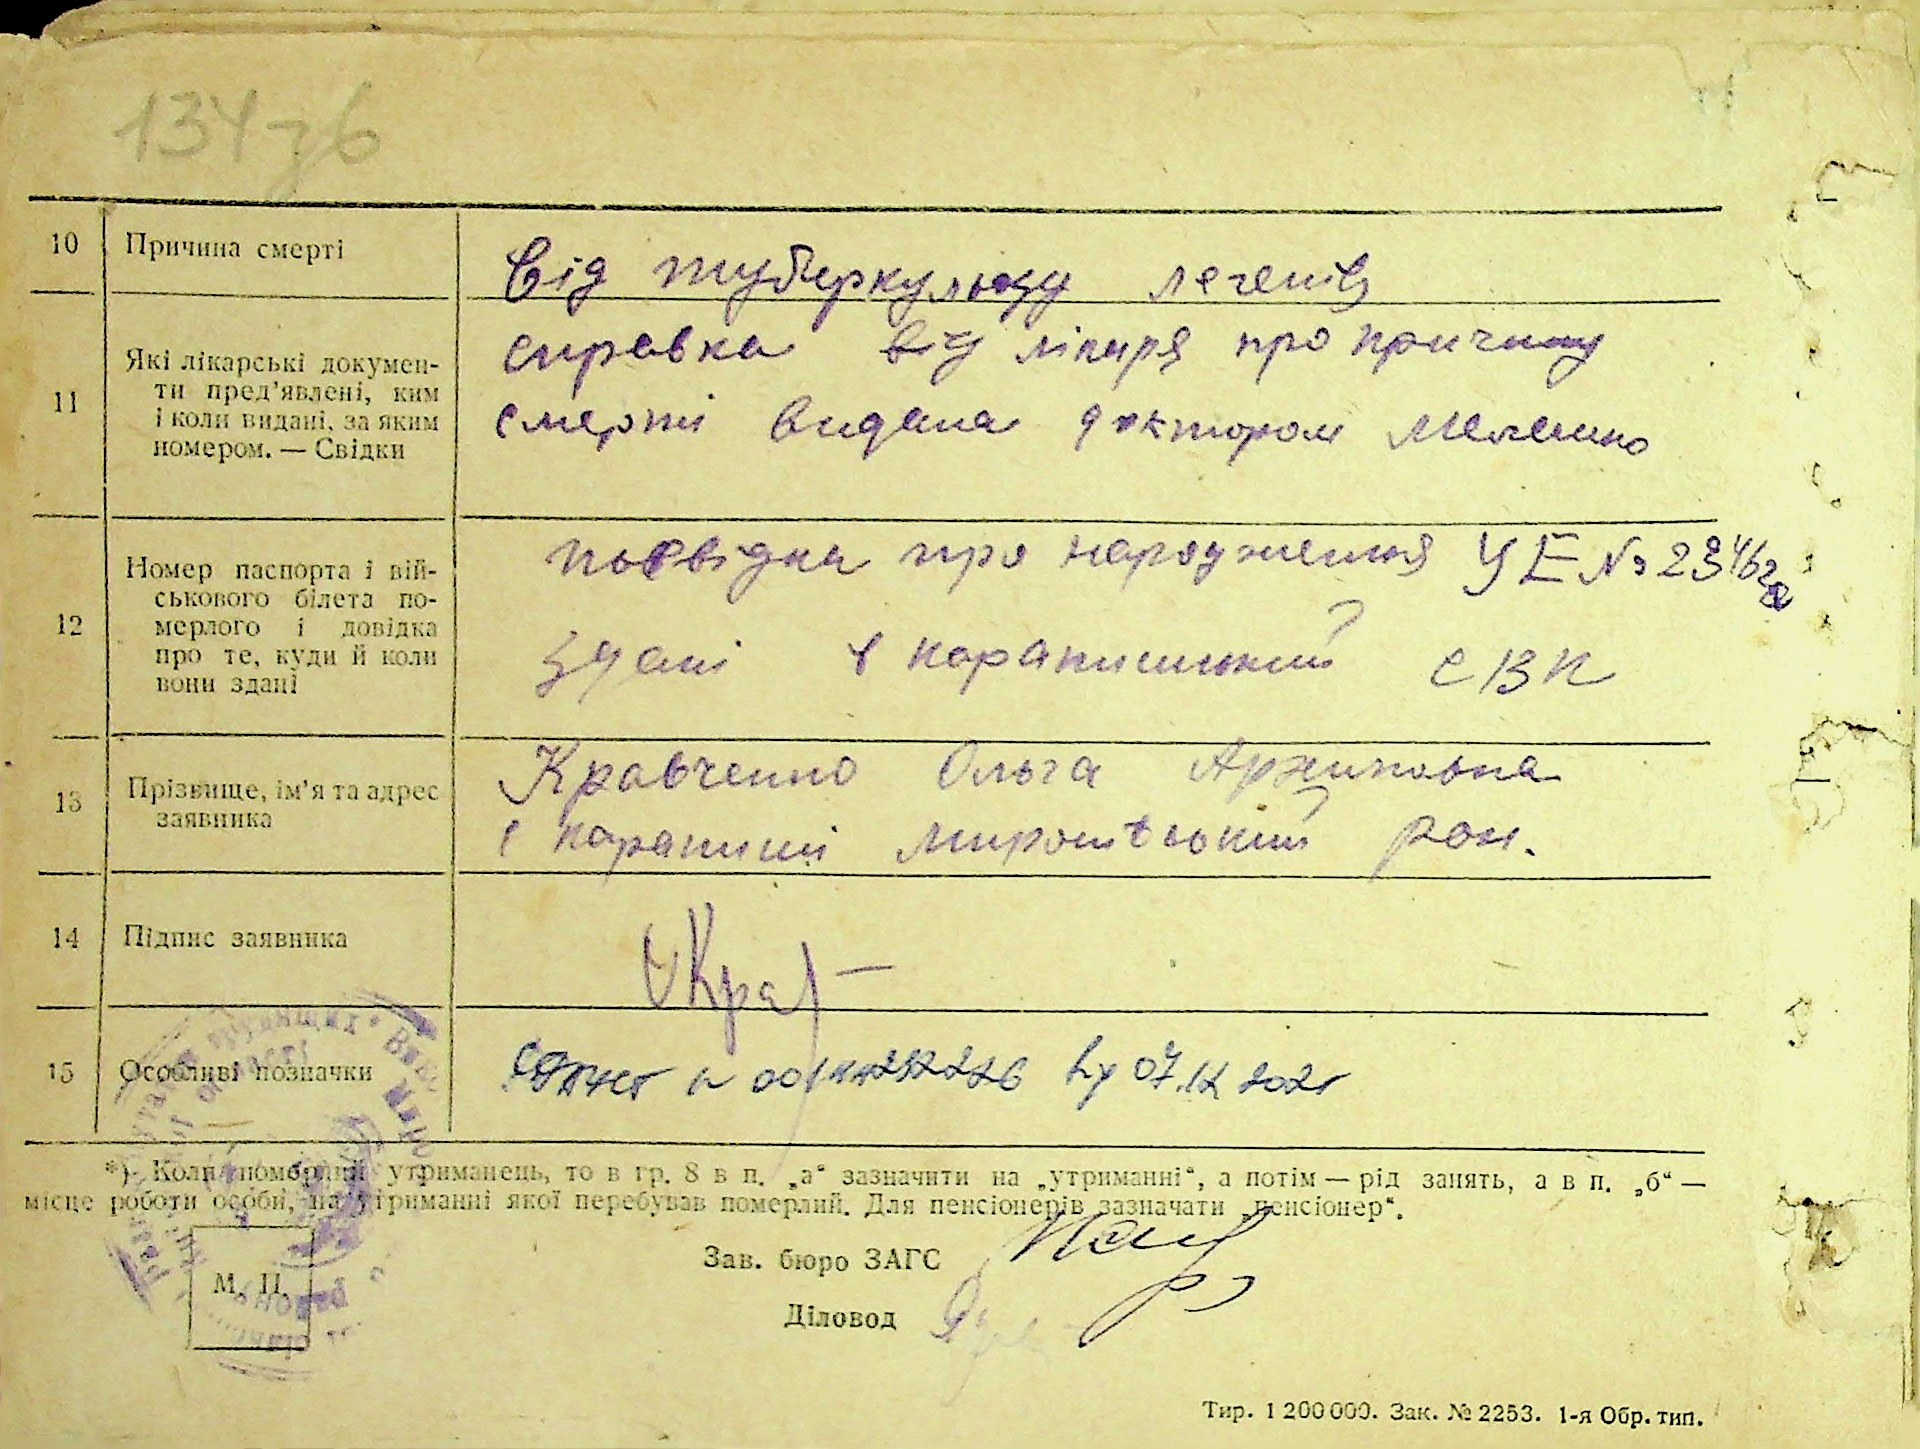 134зв
10 Причина смерті Від туберкульозу легенів
11 Які лікарські докумен-
ти пред'явлені, ким
і коли видані, за яким
номером. — Свідки
справка від лікаря про причину
смерті видана доктором
12 Номер паспорта і вій-
ськового білета по-
мерлого і довідка
про те, куди й коли
вони здані
посвідка про народження УЕ №
здані в карапишський СВК
13 Прізвище, ім'я та адрес
заявника
Кравченко Ольга Архиповна
с карапиши миронівський рон.
14 Підпис заявника
15 Особливі позначки 07.12 2021
*) Коли померлий утриманець, то в гр. 8 в п. „а“ зазначити на „утриманні“, а потім — рід занять, а в п. „б“ —
місце роботи особи, на утриманні якої перебував померлий. Для пенсіонерів зазначати „пенсіонер“.
Зав. бюро ЗАГС
М. П.
Діловод
Тир. 1 200 000. Зак. № 2253. 1-я Обр. тип.